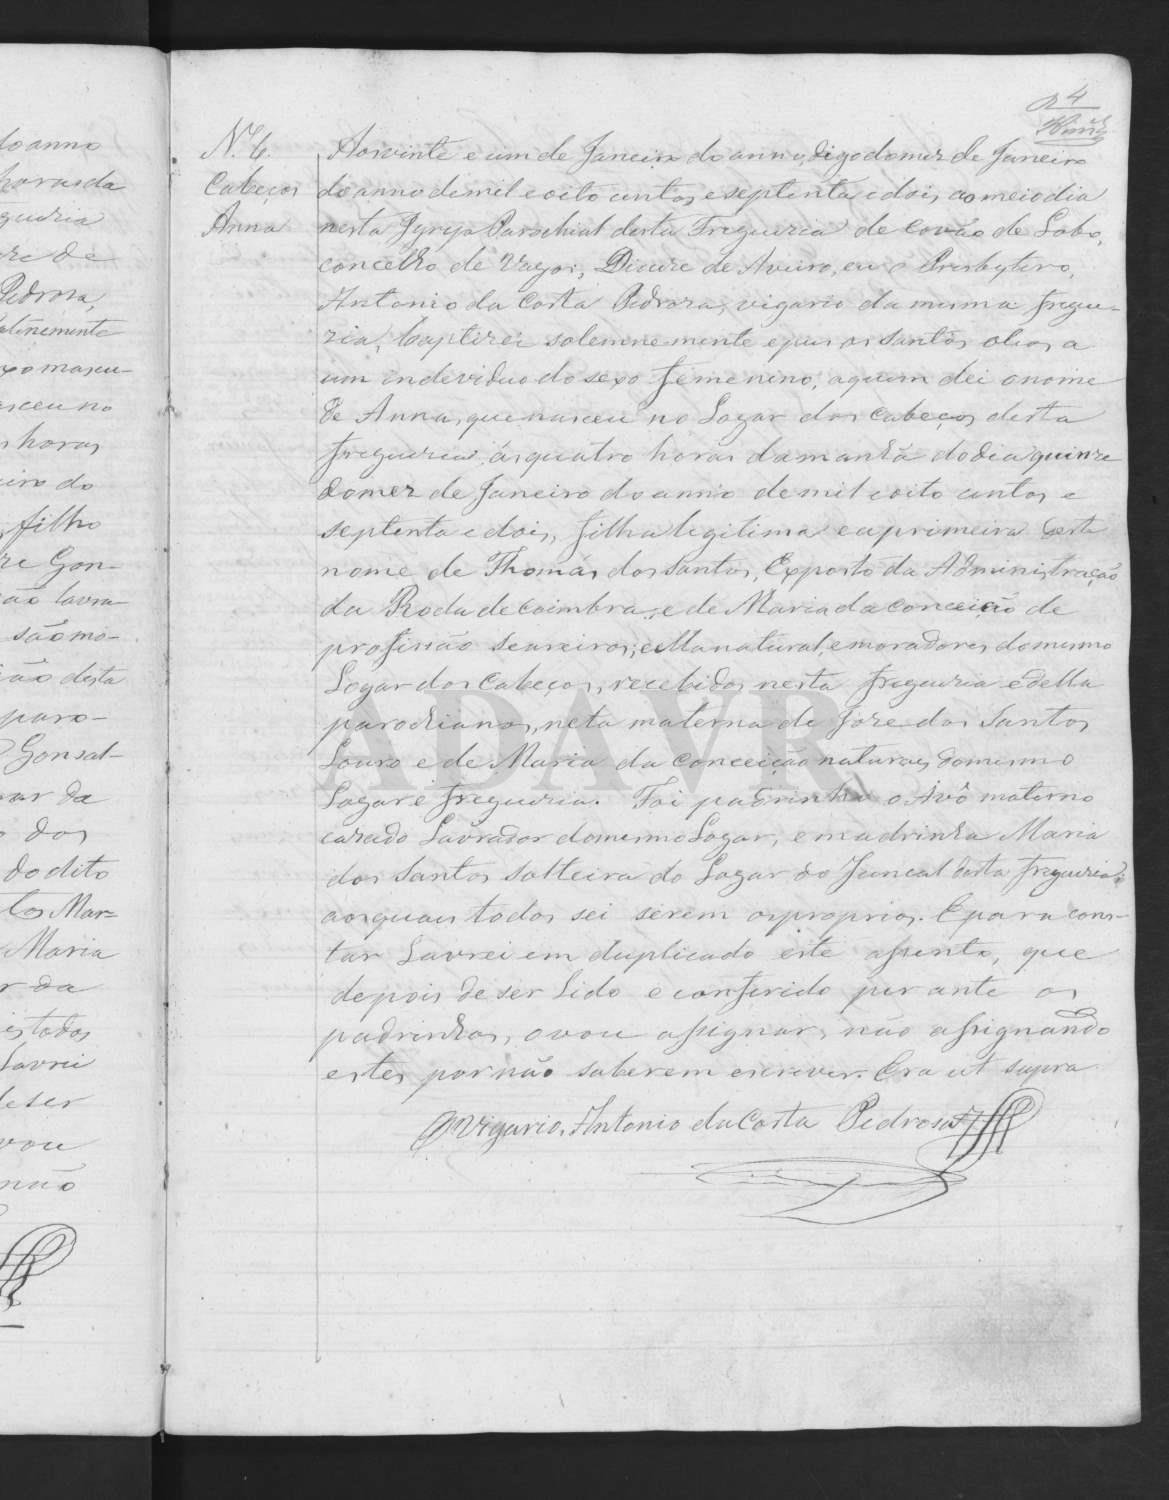 4
N.º 6.
Cabeços
Anna
Aos vinte e um de Janeiro do anno, digo do mez de Janeiro
do anno de mil e oito centos e septenta e dois, ao meio dia
nesta Igreja Parochial desta Freguezia de Covão de Lobo,
concelho de Vagos, Diocese de Aveiro, eu o Presbytero,
Antonio da Costa Pedroza, vigario da mesma fregue-
zia, baptizei solemnemente e puz os santos oleos a
um individuo do sexo femenino, a quem dei o nome
de Anna, que nasceu no Logar dos Cabeços desta
freguezia, ás quatro horas da manhã do dia quinze
do mez de Janeiro do anno de mil e oito centos e
septenta e dois, filha legitima e a primeira deste
nome de Thomás dos Santos, Exposto da Administração
da Roda de Coimbra, e de Maria da Conceição de
profissão seareiros, ella natural, e moradores do mesmo
Logar dos Cabeços, recebidos nesta freguezia e della
parochianos, neta materna de José dos Santos
Louro e de Maria da Conceição naturaes do mesmo
Logar e freguezia. Foi padrinho o Avô materno
cazado Lavrador do mesmo Logar, e madrinha Maria
dos Santos solteira do Logar do Juncal desta freguezia;
aos quaes todos sei serem os proprios. E para cons-
tar Lavrei em duplicado este assento, que
depois de ser Lido e conferido perante os
padrinhos, o vou assignar, não assignando
estes por não saberem escrever. Era ut supra
O Vigario, Antonio da Costa Pedrosa
do anno
horas da
guezia
re de
Pedroza,
mascu-
nasceu no
horas
eiro do
filho
Gon-
lavra-
são mo-
desta
paro-
Gonsal-
da
dos
do dito
Mar=
Maria
da
todos
Lavrei
de ser
vou
não
ADAVR